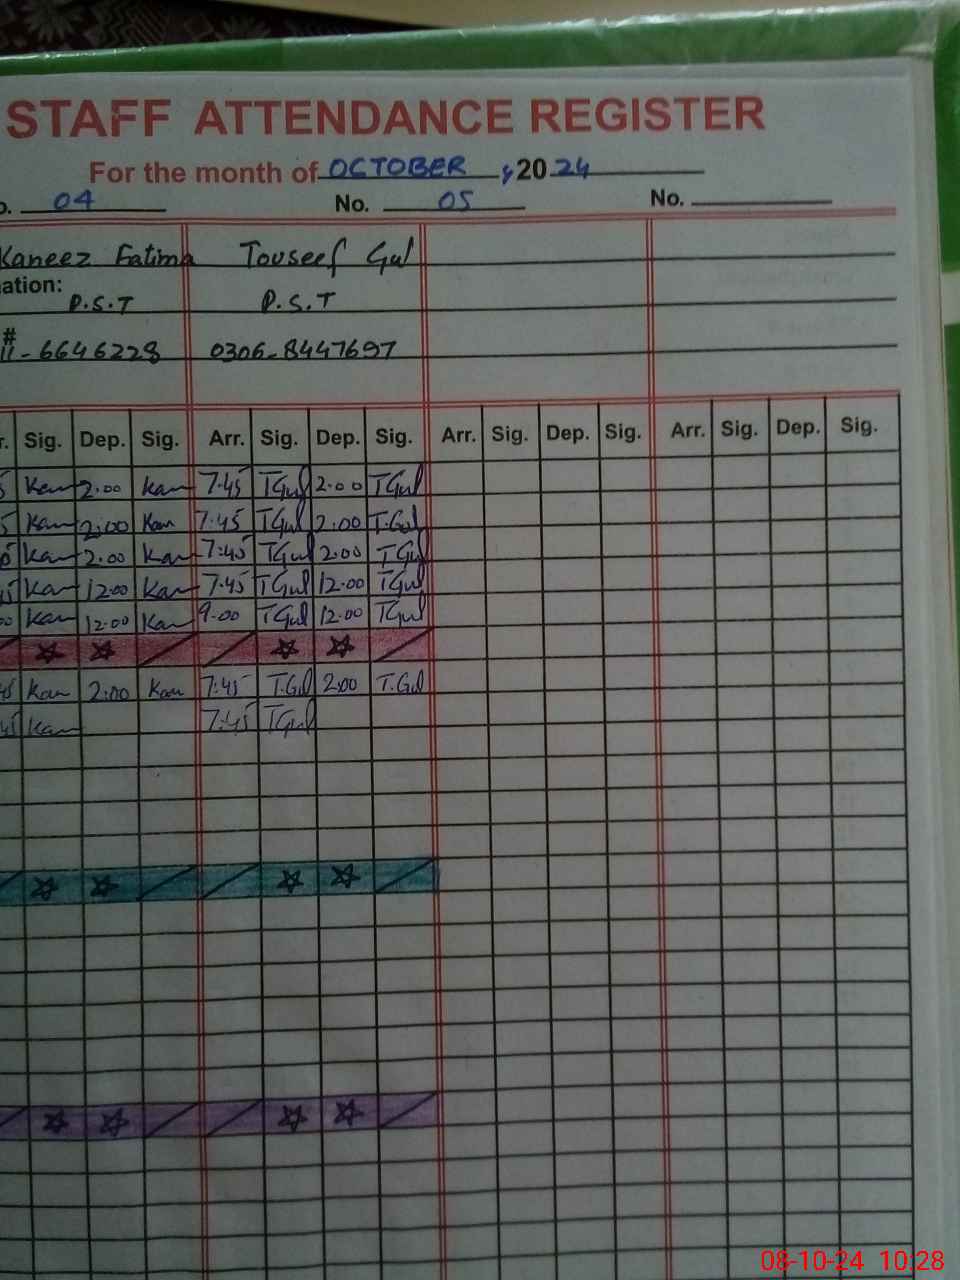 STAFF ATTENDANCE REGISTER
For the month of OCTOBER , 20 24
o. 04 No. 05 No.
Kaneez Fatima Touseef Gul
ation:
P.S.T P.S.T
#
11-6646228 0306-8447697
r. Sig. Dep. Sig. Arr. Sig. Dep. Sig. Arr. Sig. Dep. Sig. Arr. Sig. Dep. Sig.
5 Kan 2.00 Kan 7.45 TGul 2.00 TGul
5 Kan 2:00 Kan 7:45 TGul 2.00 T.Gul
5 Kan 2.00 Kan 7:45 TGul 2:00 TGul
45 Kan 12.00 Kan 7.45 TGul 12.00 TGul
00 Kan 12:00 Kan 9.00 TGul 12.00 TGul
45 Kan 2:00 Kan 7:45 T.Gul 2:00 T.Gul
45 Kan 7:45 TGul
08-10-24 10:28